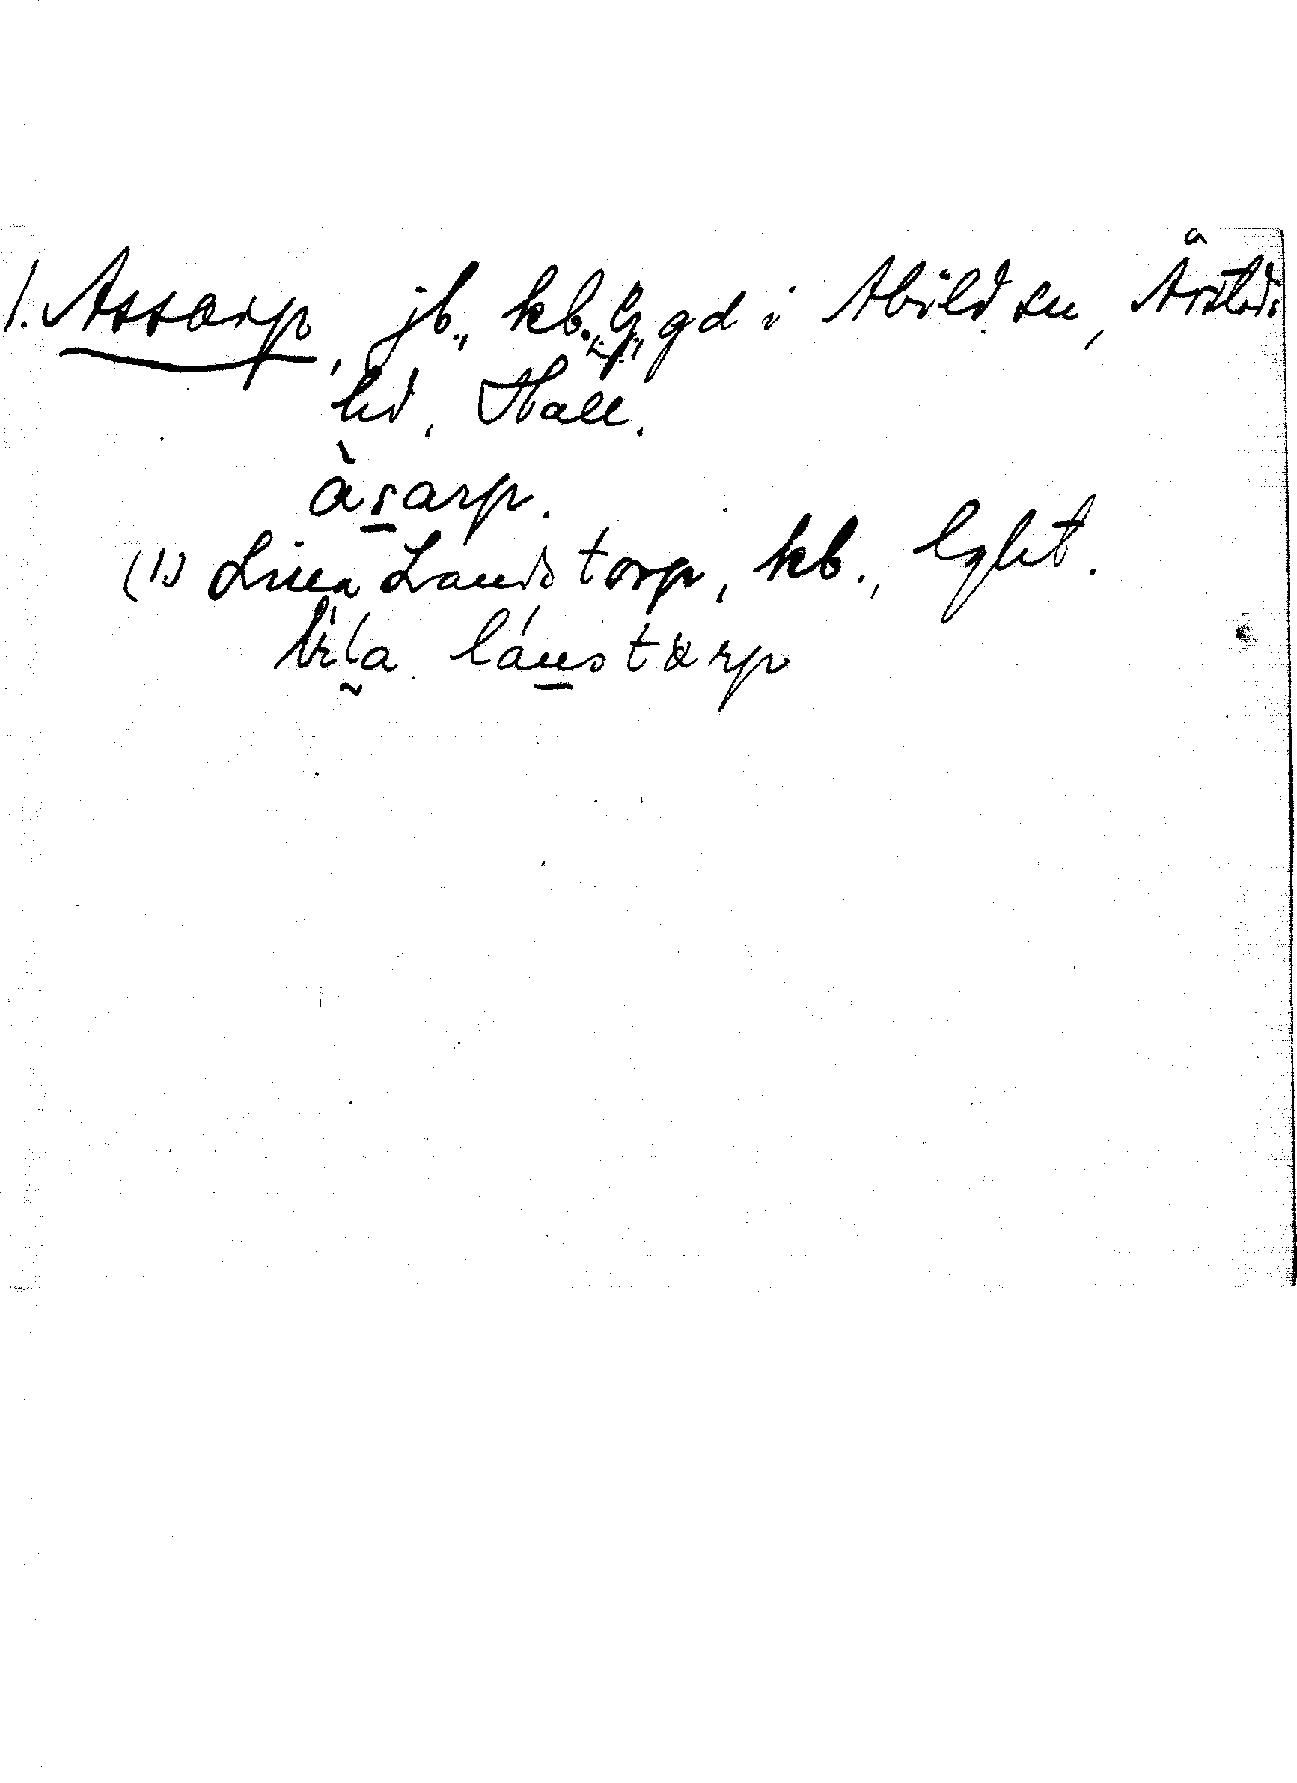 1. Assarp, jb., kb., gd i Abild sn, Årstads
hd, Hall.
àsarp.
(1) Lilla Landstorp, kb., lght.
lánstorp